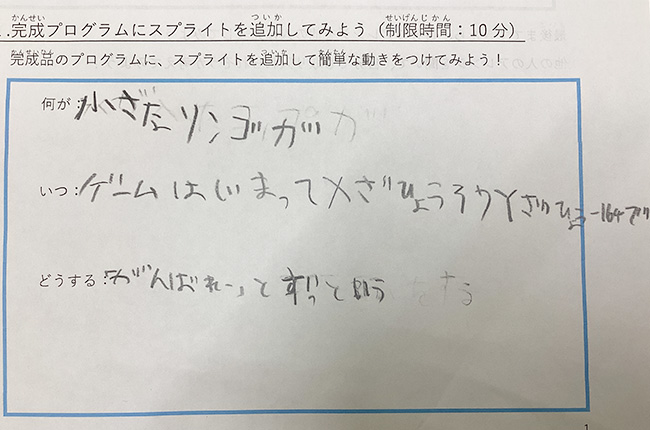 完成プログラムにスプライトを追加してみよう（制限時間：10分）
完成品のプログラムに、スプライトを追加して簡単な動きをつけてみよう！
何が：小ざたリンゴがが
いつ：ゲームはじまってXざひょう
Yざひょう-164で
どうする：「がんばれー」とずっと言う
1